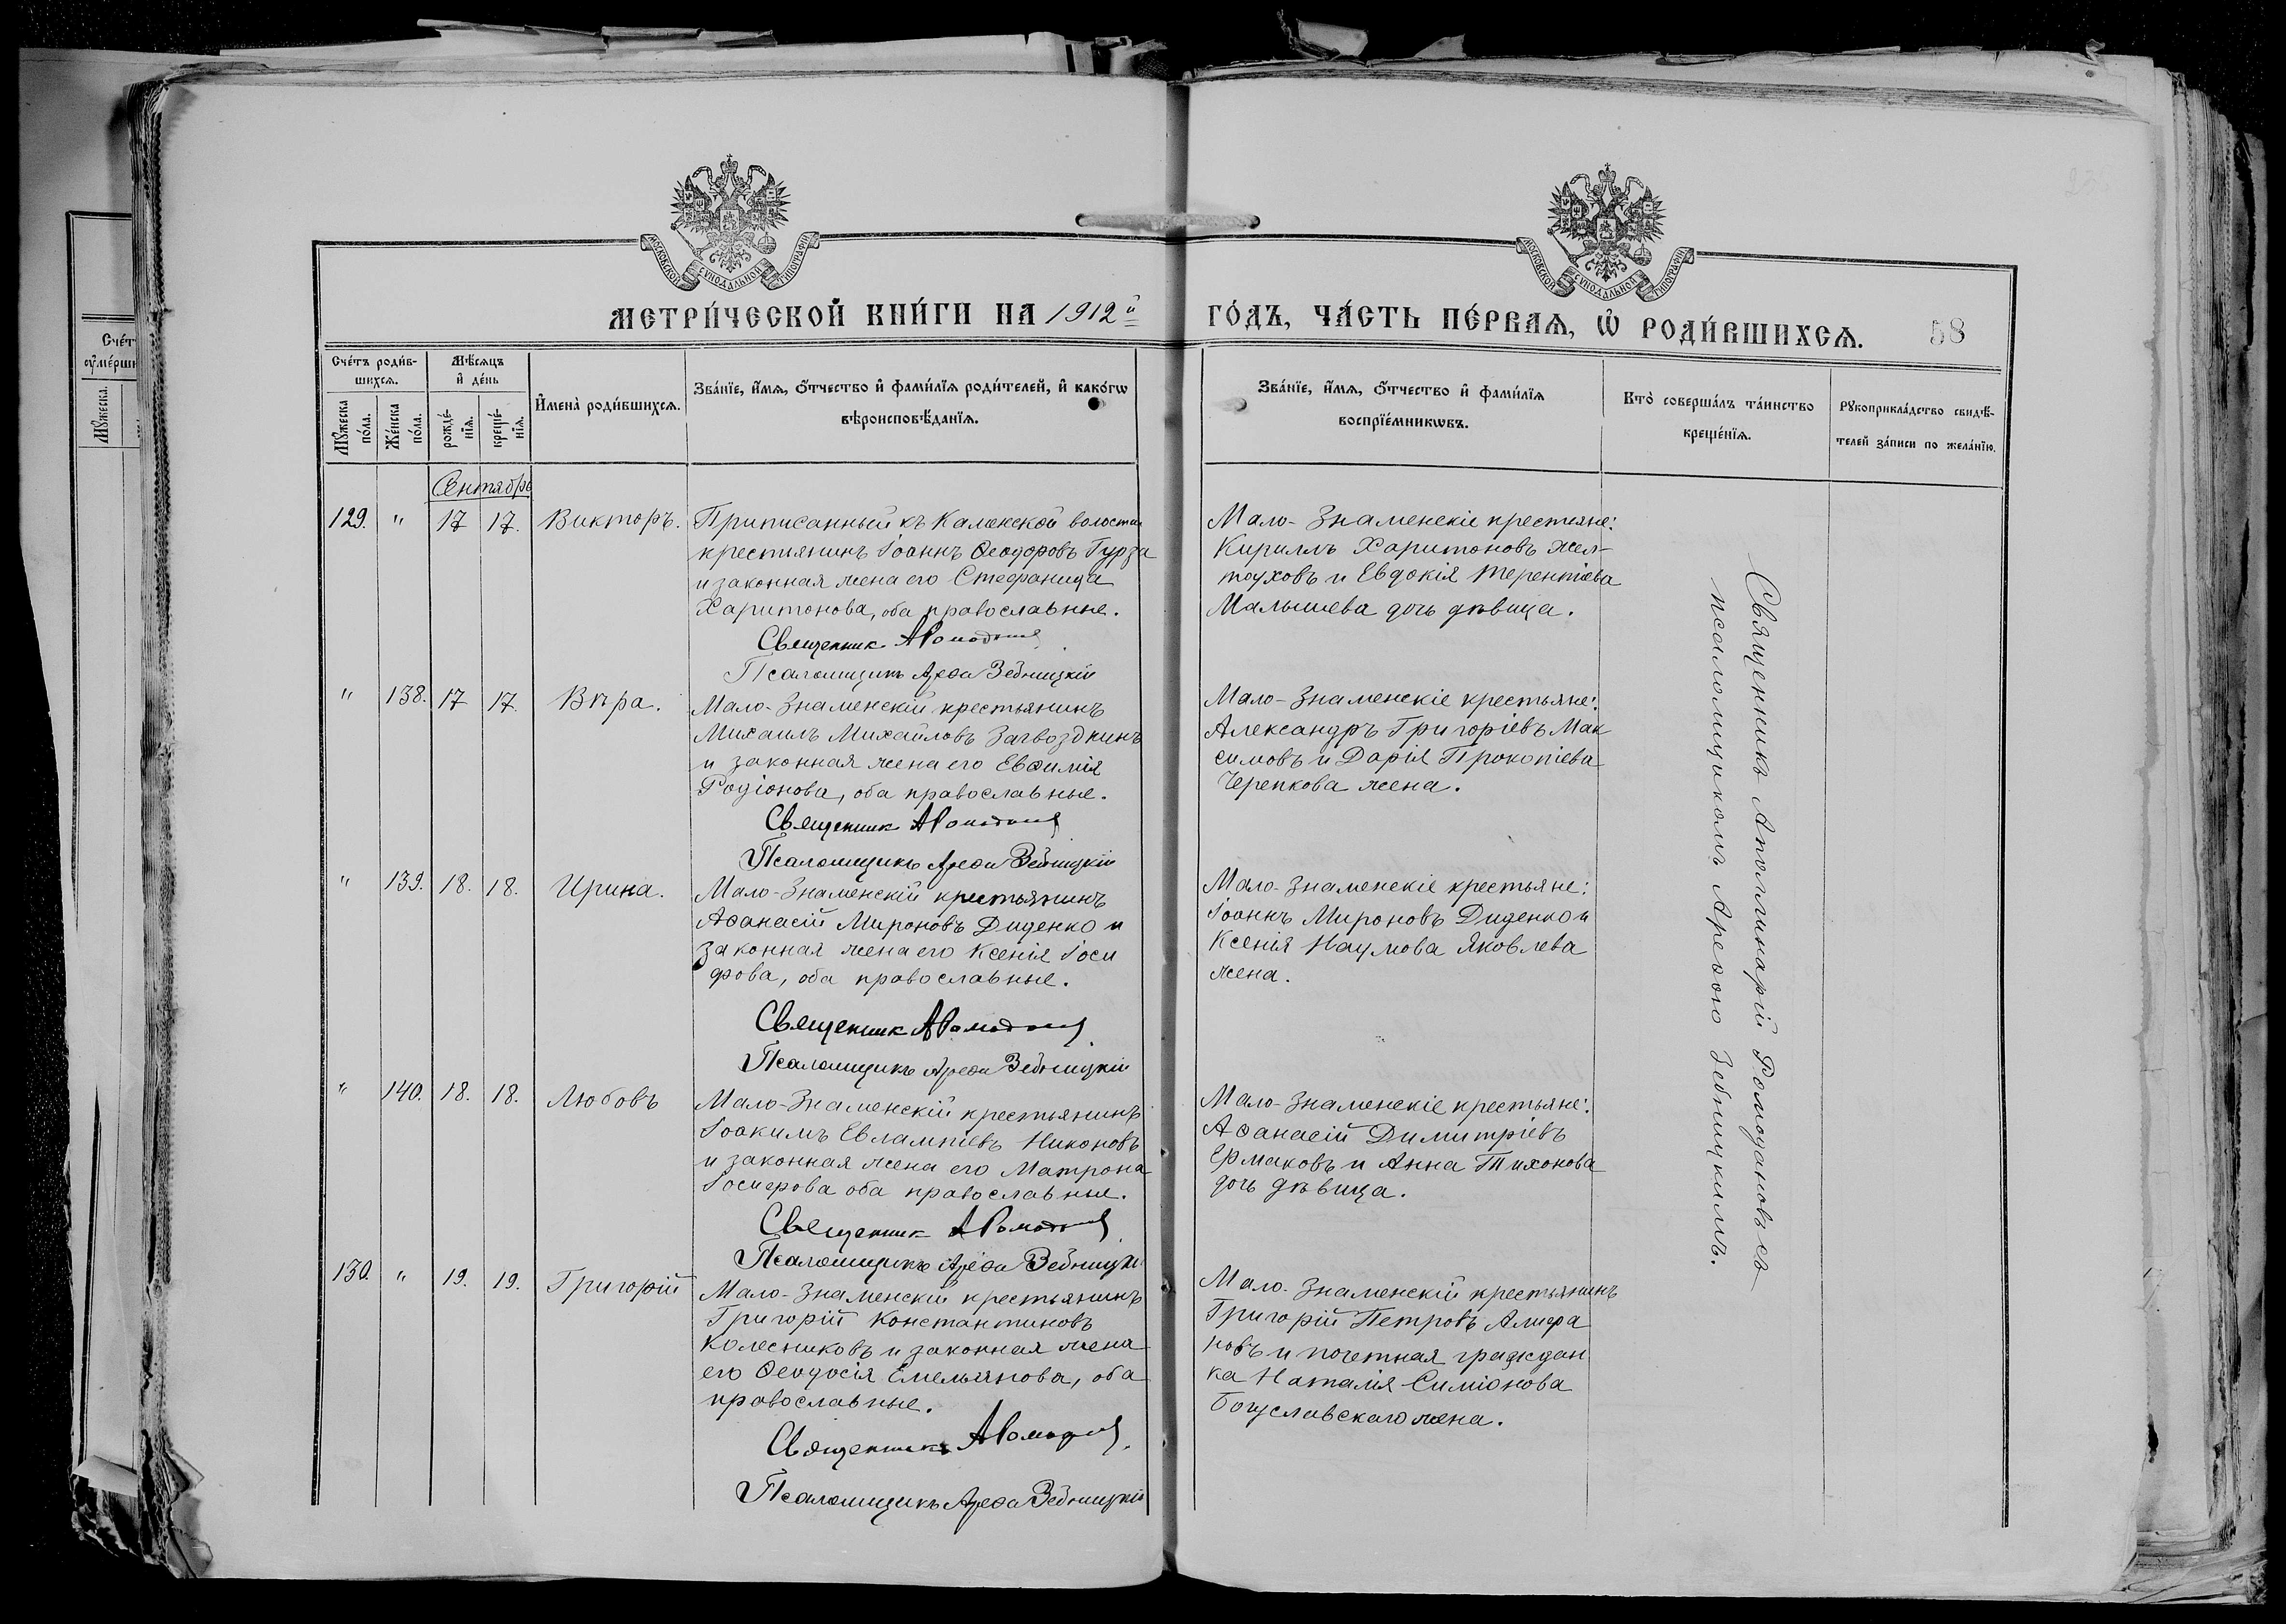 МОСКОВСКОЙ СѴНОДАЛЬНОЙ ТИПОГРАФІИ
МОСКОВСКОЙ СѴНОДАЛЬНОЙ ТИПОГРАФІИ
МЕТРИ́ЧЕСКОЙ КНИ́ГИ НА 1912й
ГО́ДЪ, ЧА́СТЬ ПЕ́РВАѦ, Ѡ҆ РОДИ́ВШИХСѦ.
58
Сче́тъ роди́в-
шихсѧ.
Мꙋ́жеска по́ла.
Же́нска по́ла.
Мѣ́сѧцъ
и҆ де́нь
рожде́-
нїѧ.
креще́-
нїѧ.
И҆мена̀ роди́вшихсѧ.
Зва́нїе, и҆́мѧ, ѻ҆́тчество и҆ фами́лїѧ роди́телей, и҆ како́гѡ
вѣроисповѣ́данїѧ.
Зва́нїе, и҆́мѧ, ѻ҆́тчество и҆ фами́лїѧ
воспрїе́мникѡвъ.
Кто̀ соверша́лъ та́инство
креще́нїѧ.
Рꙋкоприкла́дство свидѣ́-
телей за́писи по жела́нїю.
Сче́т
оу҆ме́рши
Мꙋ́жеска
Сентябрь
129. " 17 17. Викторъ.
Приписанный къ Каменской волости
крестьянинъ Іоаннъ Ѳеодоровъ Гурза
и законная жена его Стефанида
Харитонова, оба православные.
Священник АРомоданов
Псаломщикъ Арефа Зебницкій
Мало-Знаменскіе крестьяне:
Кириллъ Харитоновъ Жел-
тоуховъ и Евдокія Терентіева
Малышева дочь дѣвица.
" 138. 17 17. Вѣра.
Мало-Знаменскій крестьянинъ
Михаилъ Михайловъ Загвоздкинъ
и законная жена его Евѳимія
Родіонова, оба православные.
Священник АРомоданов
Псаломщикъ Арефа Зебницкій
Мало-Знаменскіе крестьяне:
Александръ Григоріевъ Мак
симовъ и Дарія Прокопіева
Черепкова жена.
" 139. 18. 18. Ирина.
Мало-Знаменскій крестьянинъ
Аѳанасій Мироновъ Диденко и
законная жена его Ксенія Іоси
фова, оба православные.
Священник АРомоданов
Псаломщикъ Арефа Зебницкій
Мало-Знаменскіе крестьяне:
Іоаннъ Мироновъ Диденко и
Ксенія Наумова Яковлева
жена.
" 140. 18. 18. Любовь
Мало-Знаменскій крестьянинъ
Іоакимъ Евлампіевъ Никоновъ
и законная жена его Матрона
Іосифова оба православные.
Священник АРомоданов
Псаломщикъ Арефа Зебницкі
Мало-Знаменскіе крестьяне:
Аѳанасій Димитріевъ
Ермаковъ и Анна Тихонова
дочь дѣвица.
130. " 19. 19. Григорій
Мало-Знаменскій крестьянинъ
Григорій Константиновъ
Колесниковъ и законная жена
его Ѳеодосія Емельянова, оба
православные.
Священникъ АРомоданов
Псаломщикъ Арефа Зебницкій
Мало-Знаменскій крестьянинъ
Григорій Петровъ Алифа
новъ и почетная граждан
ка Наталія Симіонова
Богуславскаго жена.
Священникъ Аполлинарій Ромодановъ съ
псаломщикомъ Арефою Зебницкимъ.